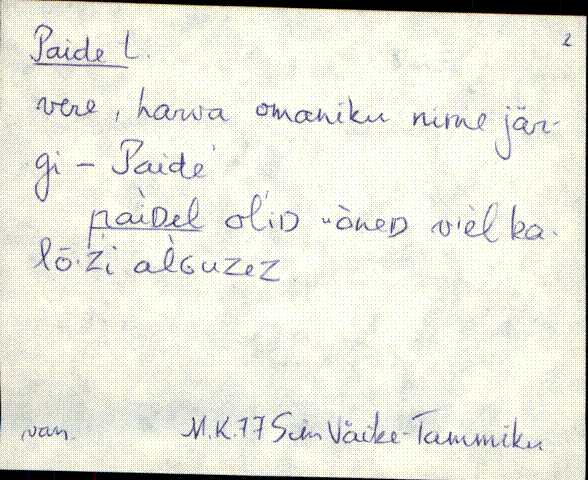 2
Paide L.
vere, harva omaniku nime jär-
gi – Paide
pàiDel oliD
lō·ži alGuzez
van. M.K.77 Sim Väike-Tammiku